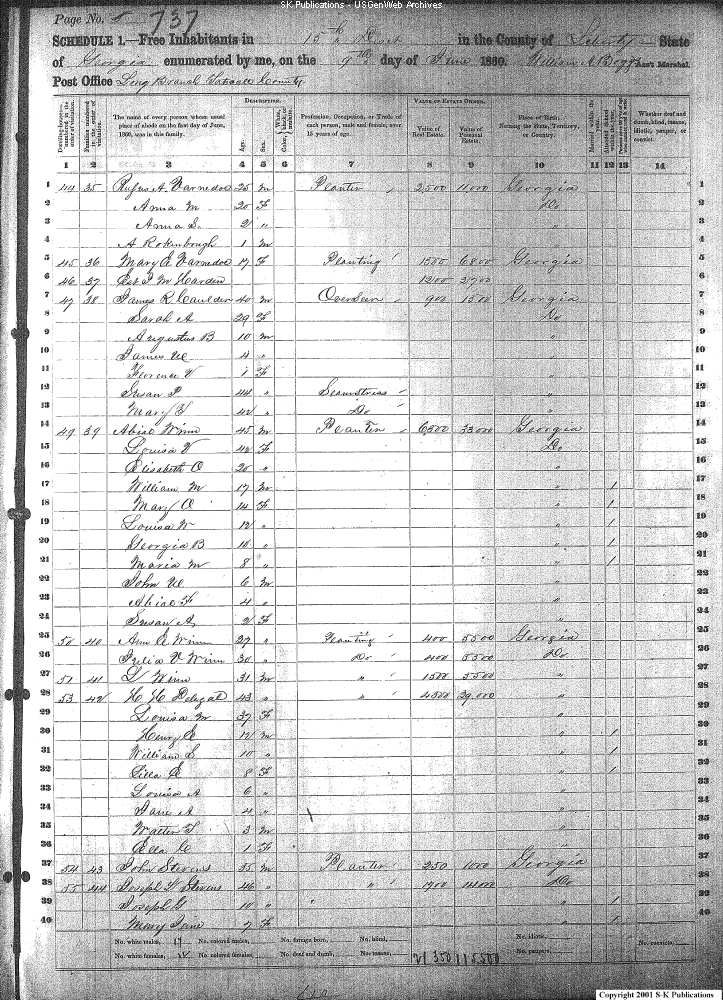 SK Publications - USGenWeb Archives
Page No. 737
SCHEDULE 1.—Free Inhabitants in 15th Dist in the County of Liberty State
of Georgia enumerated by me, on the 9th day of June 1860. William Ass't Marshal.
Post Office Long Branch Tatnall County
DESCRIPTION. VALUE OF ESTATE OWNED.
Dwelling-houses—numbered in the order of visitation. Families numbered in the order of visitation. The name of every person whose usual place of abode on the first day of June, 1860, was in this family. Age. Sex. Color, White, black, or mulatto. Profession, Occupation, or Trade of each person, male and female, over 15 years of age. Value of Real Estate. Value of Personal Estate. Place of Birth, Naming the State, Territory, or Country. Married within the year. Attended School within the year. Whether deaf and dumb, blind, insane, idiotic, pauper, or convict.
1 2 3 4 5 6 7 8 9 10 11 12 13 14
1 44 35 Rufus A. Varnedoe 25 m Planter 2,500 11,000 Georgia 1
2 Anna M 20 F Do 2
3 Anna S. 2 " " 3
4 A Rokenbough 1 m 4
5 45 36 Mary A Varnedoe 17 F Planting 1500 6800 Georgia 5
6 46 37 Est P M Harden 1200 2700 6
7 47 38 James R Caulder 40 m Overseer 900 1500 Georgia 7
8 Sarah A 29 F Do 8
9 Augustus B 10 m " 9
10 James 4 " " 10
11 Florence V 1 F " 11
12 Susan P 44 " Seamstress " 12
13 Mary 42 " Do " 13
14 49 39 Abial Winn 45 m Planter 6,500 33000 Georgia 14
15 Louisa V 42 F Do 15
16 Elisabeth O 20 " " 16
17 William M 17 m " 1 17
18 Mary O 14 F " 1 18
19 Louisa W 12 " " 1 19
20 Georgia B 10 " " 1 20
21 Maria M 8 " " 1 21
22 John 6 m " 22
23 Abial F 4 " " 23
24 Susan A, 2 F " 24
25 50 40 Ann E Winn 27 " Planting 400 5500 Georgia 25
26 Julia V Winn 30 " Do 400 5500 Do 26
27 51 41 Winn 31 m " 1500 5500 " 27
28 53 42 H H Delegal 43 " " 4300 29,000 " 28
29 Louisa M 37 F " 29
30 Henry 12 m " 1 30
31 William S 10 " " 1 31
32 Lilla E 8 F " 1 32
33 Louisa A 6 " " 33
34 Jane A 4 " " 34
35 Walter T 3 m " 35
36 Ella 1 F " 36
37 54 43 John Stevens 35 m Planter 250 1000 Georgia 37
38 55 44 Joseph W Stevens 46 " " 1700 14000 Do 38
39 Joseph 10 " " 1 39
40 Mary Jane 7 F " 1 40
No. white males, 17 No. colored males, No. foreign born, No. blind, No. idiotic, No. convicts,
No. white females, No. colored females, No. deaf and dumb, No. insane, 21350 115500 No. paupers,
Copyright 2001 S-K Publications